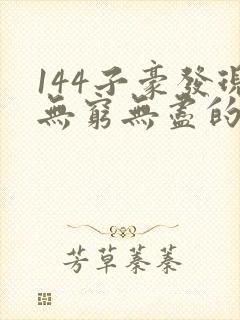 144子豪發現
無窮無盡的
芳草蓁蓁